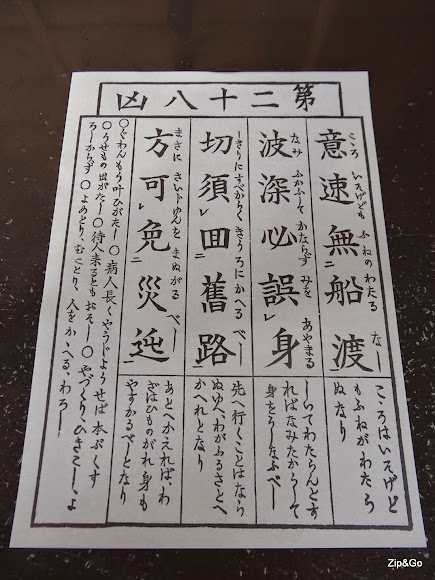 第二十八凶
こころ いそげども ふねのわたる なし
意速無二船渡一
こゝろはいそげど
もふねがわたら
ぬなり
なみ ふかふして かならず みを あやまる
波深必誤レ身
しいてわたらんとす
ればなみたかうして
身をうしなふべし
しきりにすべからく きうろにかへるべし
切須レ囬二舊路一
先へ行くことはなら
ぬゆへ、わがふるさとへ
かへれとなり
まさに さいじゆんを まぬがるべし
方可レ免二災迍一
あとへかえれば、わ
ざはひものがれ身も
やすかるべしとなり
○ぐわんもう叶ひがたし○病人長くやうじようせば本ぷくす
○うせもの出がたし○待人来るともおそし○やづくりひきこし、よ
ろしからず○よめとり、むことり、人をかゝへる、わろし
Zip&Go